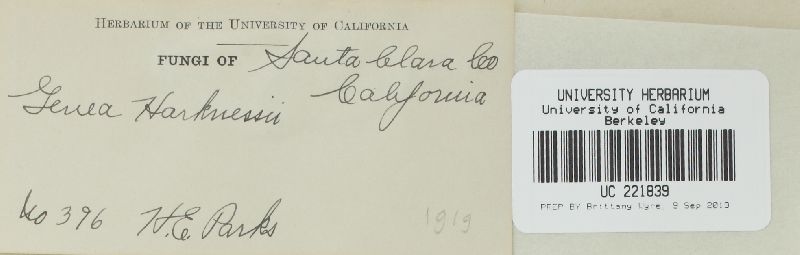 HERBARIUM OF THE UNIVERSITY OF CALIFORNIA
FUNGI OF Santa Clara Co
California
Genea Harknessii
No 396 H.E. Parks
1919
UNIVERSITY HERBARIUM
University of California
Berkeley
UC 221839
PREP BY Brittany Nyre, 9 Sep 2013